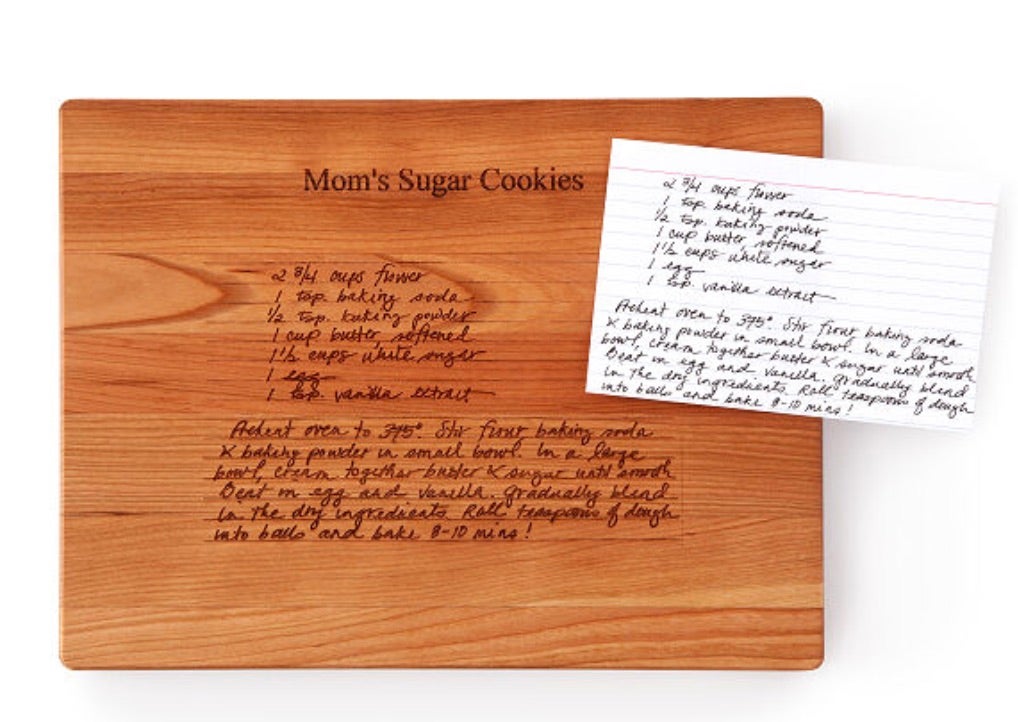 Mom's Sugar Cookies
2 3/4 cups flower
1 tsp. baking soda
1/2 tsp. baking powder
1 cup butter, softened
1 1/2 cups white sugar
1 egg
1 tsp. vanilla extract
Preheat oven to 375°. Stir flour baking soda
& baking powder in small bowl. In a large
bowl, cream together butter & sugar until smooth
Beat in egg and vanilla. Gradually blend
in the dry ingredients. Roll teaspoons of dough
into balls and bake 8-10 mins!
2 3/4 cups flower
1 tsp. baking soda
1/2 tsp. baking powder
1 cup butter, softened
1 1/2 cups white sugar
1 egg
1 tsp. vanilla extract
Preheat oven to 375°. Stir flour baking soda
& baking powder in small bowl. In a large
bowl, cream together butter & sugar until smooth
Beat in egg and vanilla. Gradually blend
in the dry ingredients. Roll teaspoons of dough
into balls and bake 8-10 mins!